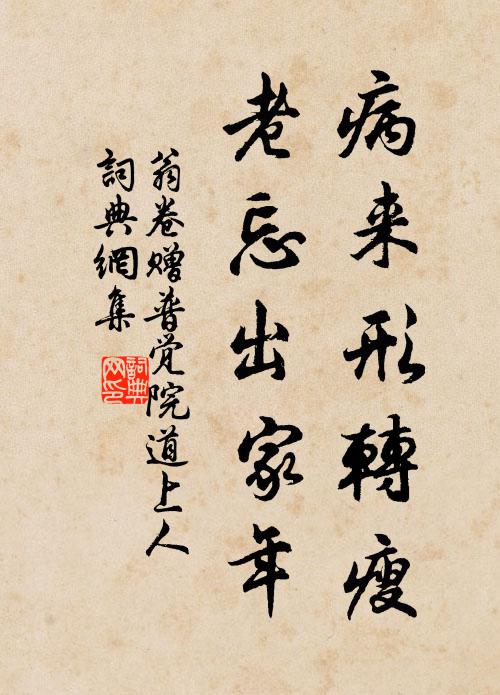 病来形轉瘦
老忘出家年
翁卷赠普觉院道上人
詞典網集
詞典网印